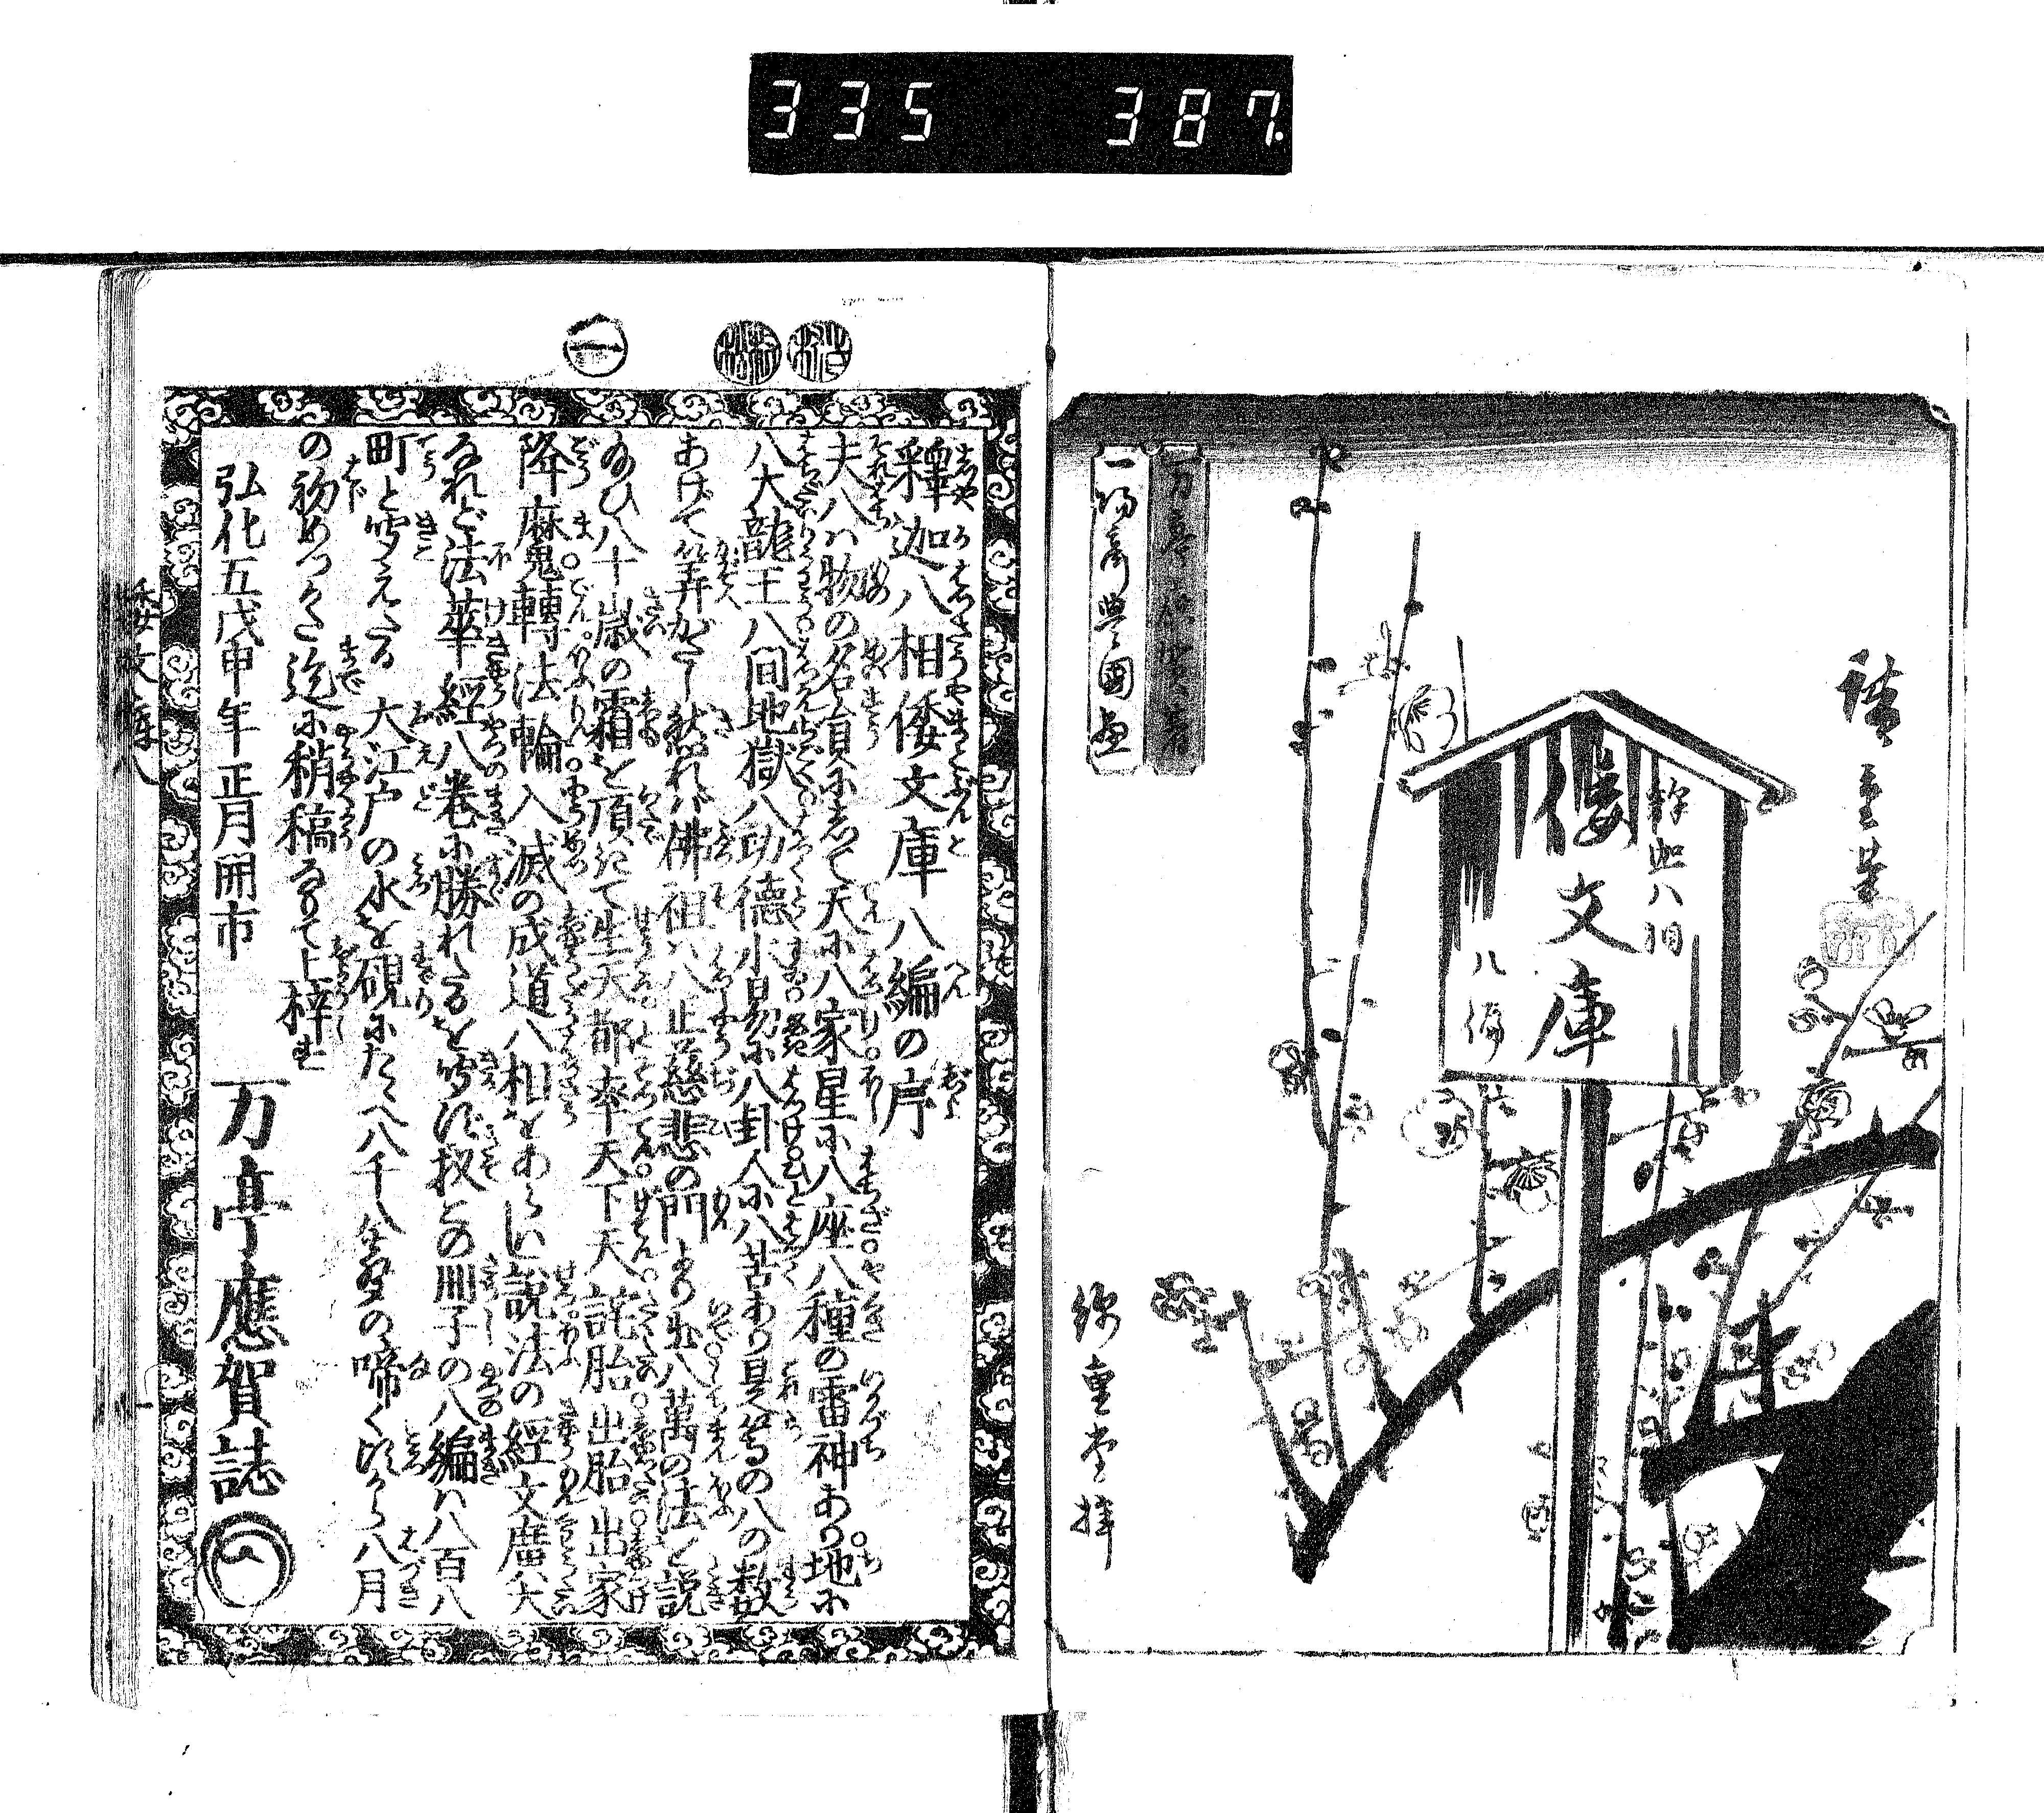 335 387
廣重筆
釈迦八相
倭文庫
八編
万亭應賀著
一陽齋豊國画
錦重堂梓
釋迦八相倭文庫八編の序
夫八ハ物の名員にして天に八家星に八座八種の雷神あり地に
八大龍王八間地獄八功徳水易に八卦人に八苦あり是等の八の数
あげて筭がたし然れバ佛祖ハ八正慈悲の門より出八萬の法を説
給ひ八十歳の霜を頂にて生天都率天下天託胎出胎出家
降魔轉法輪入滅の成道八相をあらハし説法の經文廣大
なれど法華經八巻に勝れたるを
の八編ハ八百八
町と聞えたる大江戸の水を硯にたゝへ八千八聲の啼く頃から八月
の初めつかた迄に稍稿なりて上梓す
弘化五戊申年正月開市
万亭應賀誌
倭文庫八